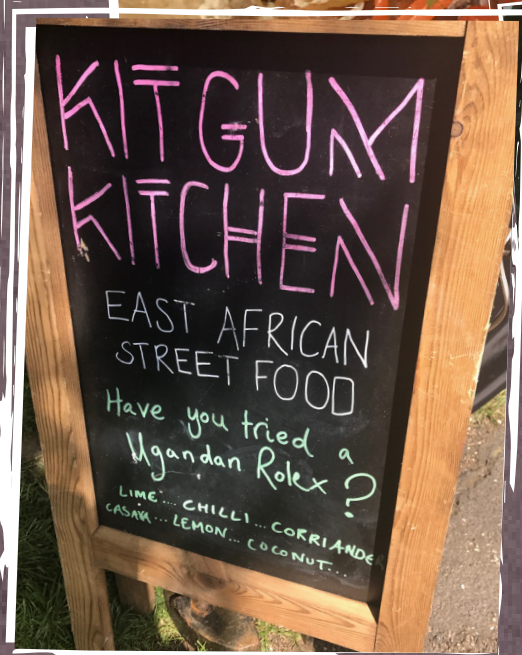 KITGUM
KITCHEN
EAST AFRICAN
STREET FOOD
Have you tried a
Ugandan Rolex?
LIME... CHILLI... CORRIANDER
CASAVA... LEMON... COCONUT...